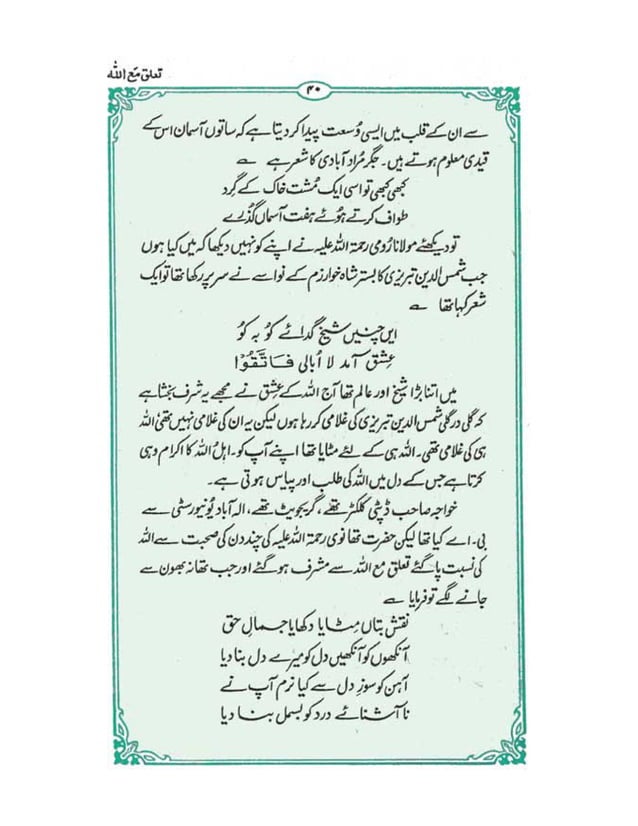 تعلق مع اللہ
۴۰
سے ان کے قلب میں ایسی وُسعت پیدا کر دیتا ہے کہ ساتوں آسمان اس کے
قیدی معلوم ہوتے ہیں۔ جگر مُراد آبادی کا شعر ہے ؎
کبھی کبھی تو اسی ایک مُشت خاک کے گِرد
طواف کرتے ہُوئے ہفت آسماں گذرے
تو دیکھئے مولانا رُومی رحمۃ اللہ علیہ نے اپنے کو نہیں دیکھا کہ میں کیا ہوں
جب شمس الدین تبریزی کا بستر شاہ خوارزم کے نواسے نے سر پر رکھا تھا تو ایک
شعر کہا تھا ؎
ایں چنیں شیخ گدائے کُو بہ کُو
عِشق آمد لا اُبالی فَاتَّقُوْا
میں اتنا بڑا شیخ اور عالم تھا آج اللہ کے عِشق نے مجھے یہ شرف بخشا ہے
کہ گلی در گلی شمس الدین تبریزی کی غلامی کر رہا ہوں لیکن یہ ان کی غلامی نہیں تھی اللہ
ہی کی غلامی تھی۔ اللہ ہی کے لئے مٹایا تھا اپنے آپ کو۔ اہلُ اللہ کا اکرام وہی
کرتا ہے جس کے دل میں اللہ کی طلب اور پیاس ہوتی ہے۔
خواجہ صاحب ڈپٹی کلکٹر تھے، گریجویٹ تھے، الہ آباد یُونیورسٹی سے
بی۔ اے کیا تھا لیکن حضرت تھانوی رحمۃ اللہ علیہ کی چند دن کی صحبت سے اللہ
کی نسبت پا گئے تعلق مع اللہ سے مشرف ہو گئے اور جب تھانہ بھون سے
جانے لگے تو فرمایا ؎
نقش بتاں مِٹایا دکھایا جمالِ حق
آنکھوں کو آنکھیں دل کو میرے دل بنا دیا
آہن کو سوزِ دل سے کیا نرم آپ نے
نا آشنائے درد کو بسمل بنا دیا